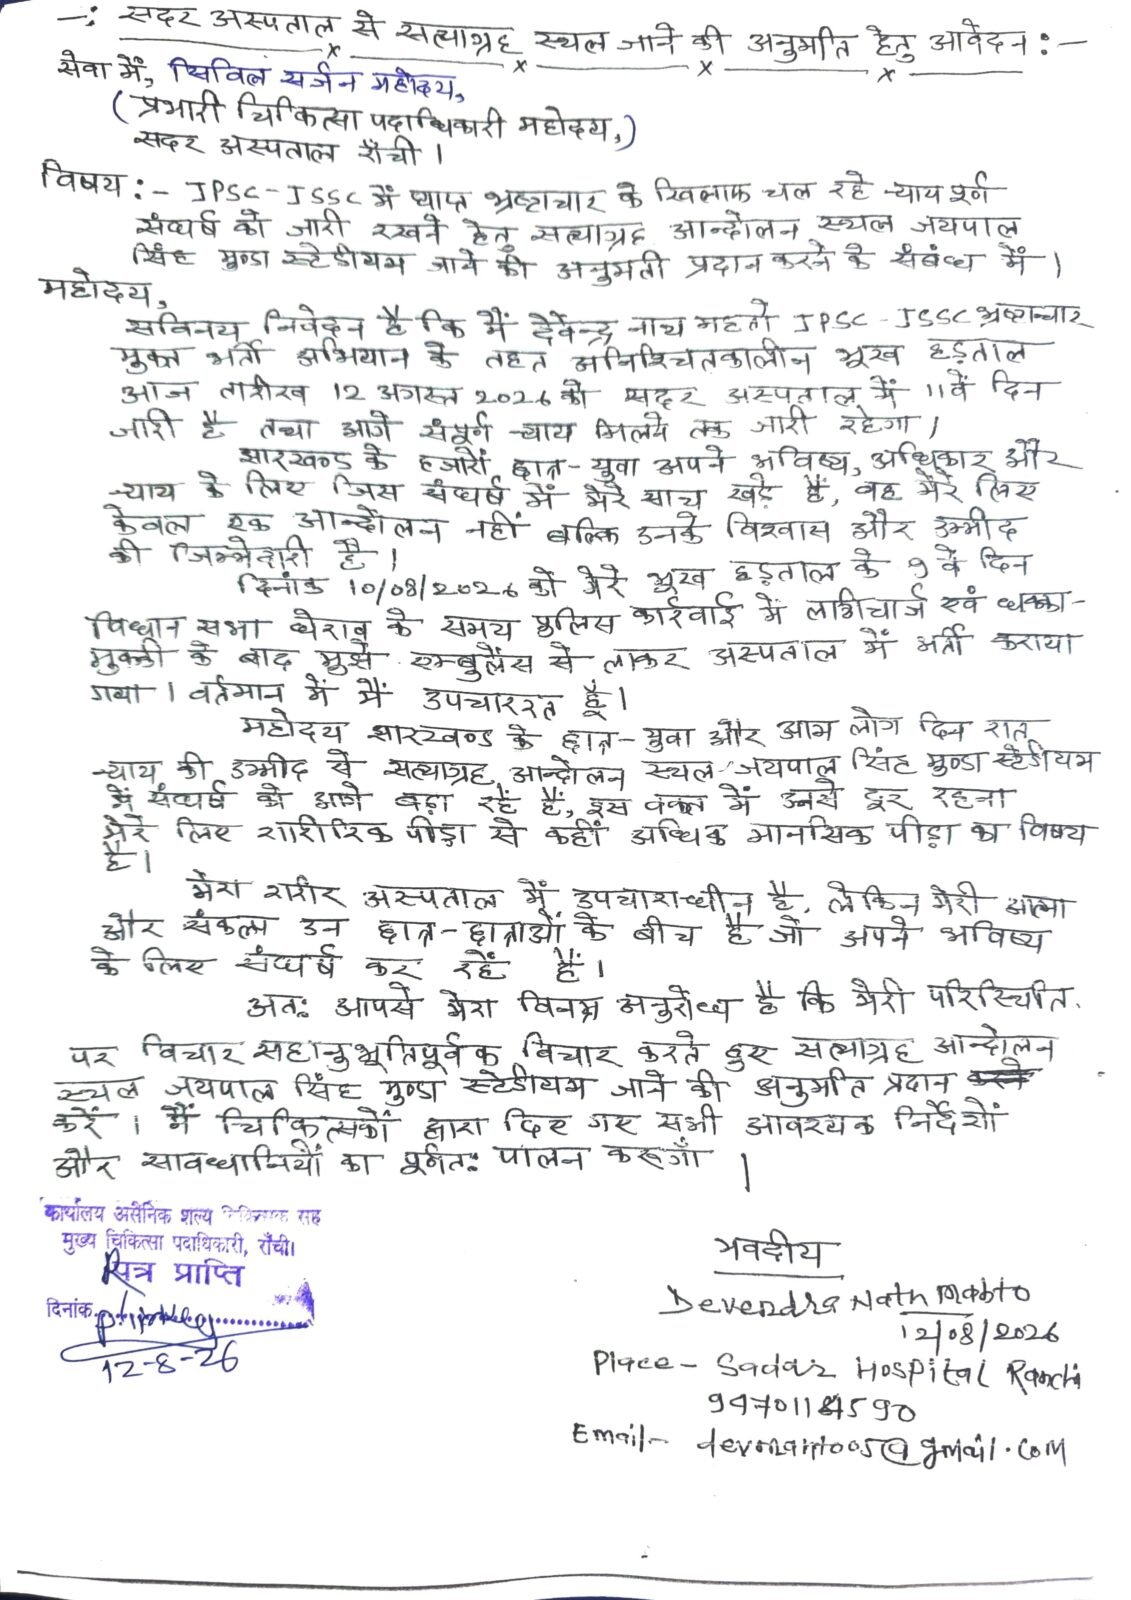 -: सदर अस्पताल से सत्याग्रह स्थल जाने की अनुमति हेतु आवेदन :-
सेवा में, सिविल सर्जन महोदय,
(प्रभारी चिकित्सा पदाधिकारी महोदय,)
सदर अस्पताल राँची।
विषय :- JPSC-JSSC में व्याप्त भ्रष्टाचार के खिलाफ चल रहे न्यायपूर्ण
संघर्ष को जारी रखने हेतु सत्याग्रह आन्दोलन स्थल जयपाल
सिंह मुण्डा स्टेडीयम जाने की अनुमती प्रदान करने के संबंध में।
महोदय,
सविनय निवेदन है कि मैं देवेन्द्र नाथ महतो JPSC-JSSC भ्रष्टाचार
मुक्त भर्ती अभियान के तहत अनिश्चितकालीन भूख हड़ताल
आज तारीख 12 अगस्त 2026 को सदर अस्पताल में 11वें दिन
जारी है तथा आगे संपूर्ण न्याय मिलने तक जारी रहेगा।
झारखण्ड के हजारों छात्र-युवा अपने भविष्य, अधिकार और
न्याय के लिए जिस संघर्ष में मेरे साथ खड़े हैं, वह मेरे लिए
केवल एक आन्दोलन नहीं बल्कि उनके विश्वास और उम्मीद
की जिम्मेदारी है।
दिनांक 10/08/2026 को मेरे भूख हड़ताल के 9 वें दिन
विधान सभा घेराव के समय पुलिस कार्रवाई में लाठीचार्ज एवं धक्का-
मुक्की के बाद मुझे एम्बुलेंस से लाकर अस्पताल में भर्ती कराया
गया। वर्तमान में मैं उपचाररत हूँ।
महोदय झारखण्ड के छात्र-युवा और आम लोग दिन रात
न्याय की उम्मीद से सत्याग्रह आन्दोलन स्थल जयपाल सिंह मुण्डा स्टेडीयम
में संघर्ष को आगे बढ़ा रहें हैं, इस वक्त में उनसे दूर रहना
मेरे लिए शारीरिक पीड़ा से कहीं अधिक मानसिक पीड़ा का विषय
है।
मेरा शरीर अस्पताल में उपचाराधीन है, लेकिन मेरी आत्मा
और संकल्प उन छात्र-छात्राओं के बीच है जो अपने भविष्य
के लिए संघर्ष कर रहें हैं।
अतः आपसे मेरा विनम्र अनुरोध है कि मेरी परिस्थिति
पर विचार सहानुभूतिपूर्वक विचार करते हुए सत्याग्रह आन्दोलन
स्थल जयपाल सिंह मुण्डा स्टेडीयम जाने की अनुमति प्रदान
करें। मैं चिकित्सकों द्वारा दिए गए सभी आवश्यक निर्देशों
और सावधानियों का पूर्णतः पालन करूगाँ।
कार्यालय असैनिक शल्य चिकित्सक सह
मुख्य चिकित्सा पदाधिकारी, राँची।
पत्र प्राप्ति
दिनांक
12-8-26
भवदीय
Devendra Nath Mahto
12/08/2026
Place - Sadar Hospital Ranchi
Email-